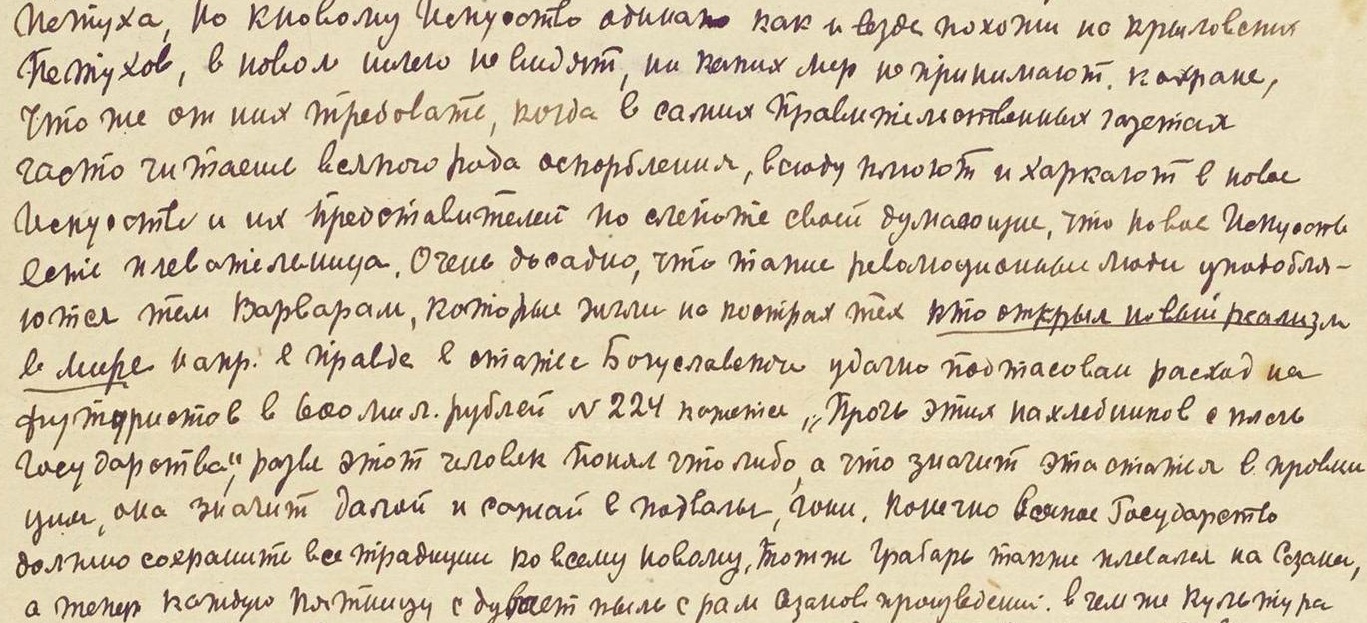 Петуха, но к новому Искусство одинако как и везде похожи на крыловских
Петухов, в новом ничего не видят, ни каких мер не принимают. к охране,
Что же от них требовать, когда в самих Правительственных газетах
часто читаеш всякого рода оскорбления, всюду плюют и харкают в новое
Искуство и их представителей по слепоте своей думающие, что новое Искуств
есть плевательница. Очень досадно, что такие революционные люди уподобля-
ются тем Варварам, которые жгли на кострах тех кто открыл новый реализм
в мире напр. в Правде в статье Богуславской удачно подтасован расход на
футуристов в 600 мил. рублей № 224 кажется „Прочь этих нахлебников с плечь
Государства", разве этот человек понял что либо, а что значит эта статья в провин
ции, она значит далой и сажай в подвалы, гони. Конечно всякое Государство
должно сохранить все традиции ко всему новому, тотже Грабарь также плевался на Сезана,
а тепер каждую пятницу сдувает пыль с рам Сезанов произведений. в чем же культура